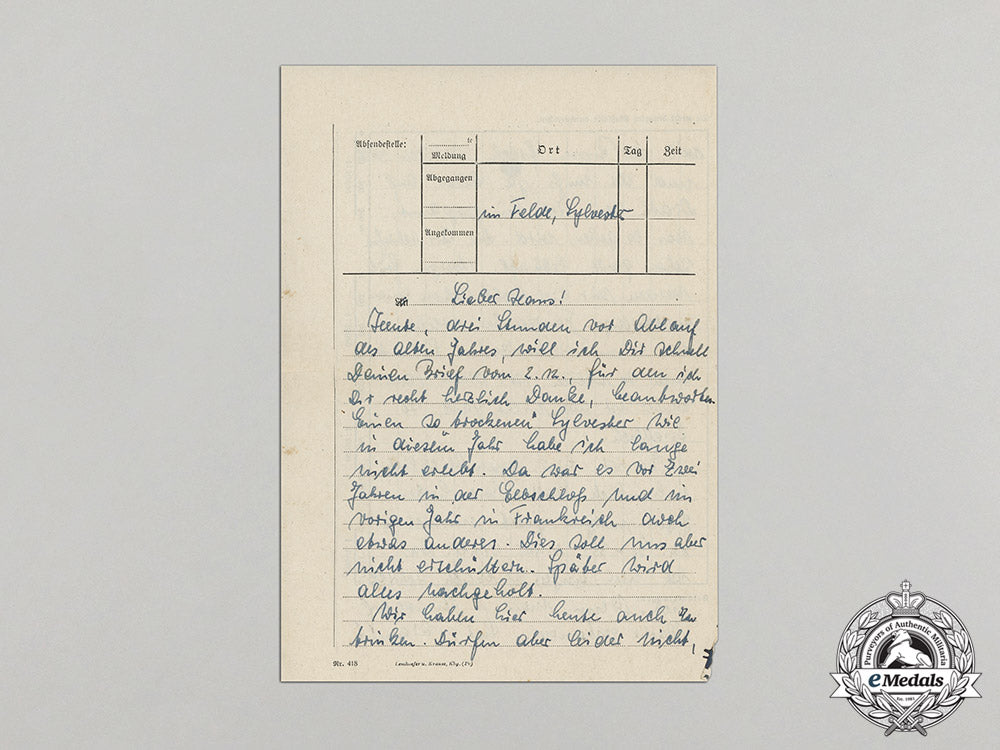 Absendestelle:
te
Meldung
Ort
Tag
Zeit
Abgegangen
Angekommen
im Felde, Sylvester
Lieber Hans!
Heute, drei Stunden vor Ablauf
des alten Jahres, will ich Dir schnell
Deinen Brief vom 2.12., für den ich
Dir recht herzlich Danke, beantworten.
Einen so "trockenen" Sylvester wie
in diesem Jahr habe ich lange
nicht erlebt. Da war es vor zwei
Jahren in der Elbschloß und im
vorigen Jahr in Frankreich doch
etwas anderes. Dies soll uns aber
nicht erschüttern. Später wird
alles nachgeholt.
Wir haben hier heute auch zu
trinken. Dürfen aber leider nicht,
Nr. 418
Purveyors of Authentic Militaria
eMedals